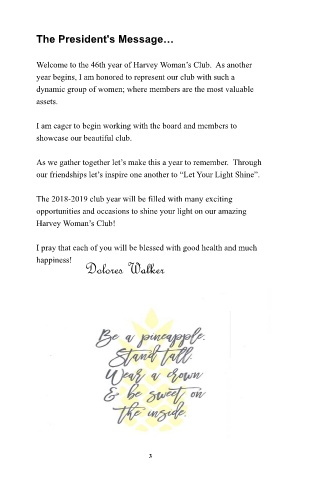 The President's Message…
Welcome to the 46th year of Harvey Woman's Club.  As another
year begins, I am honored to represent our club with such a
dynamic group of women; where members are the most valuable
assets.
I am eager to begin working with the board and members to
showcase our beautiful club.
As we gather together let's make this a year to remember.  Through
our friendships let's inspire one another to "Let Your Light Shine".
The 2018-2019 club year will be filled with many exciting
opportunities and occasions to shine your light on our amazing
Harvey Woman's Club!
I pray that each of you will be blessed with good health and much
happiness!
Dolores Walker
Be a pineapple.
Stand tall.
Wear a crown
& be sweet on
the inside.
3